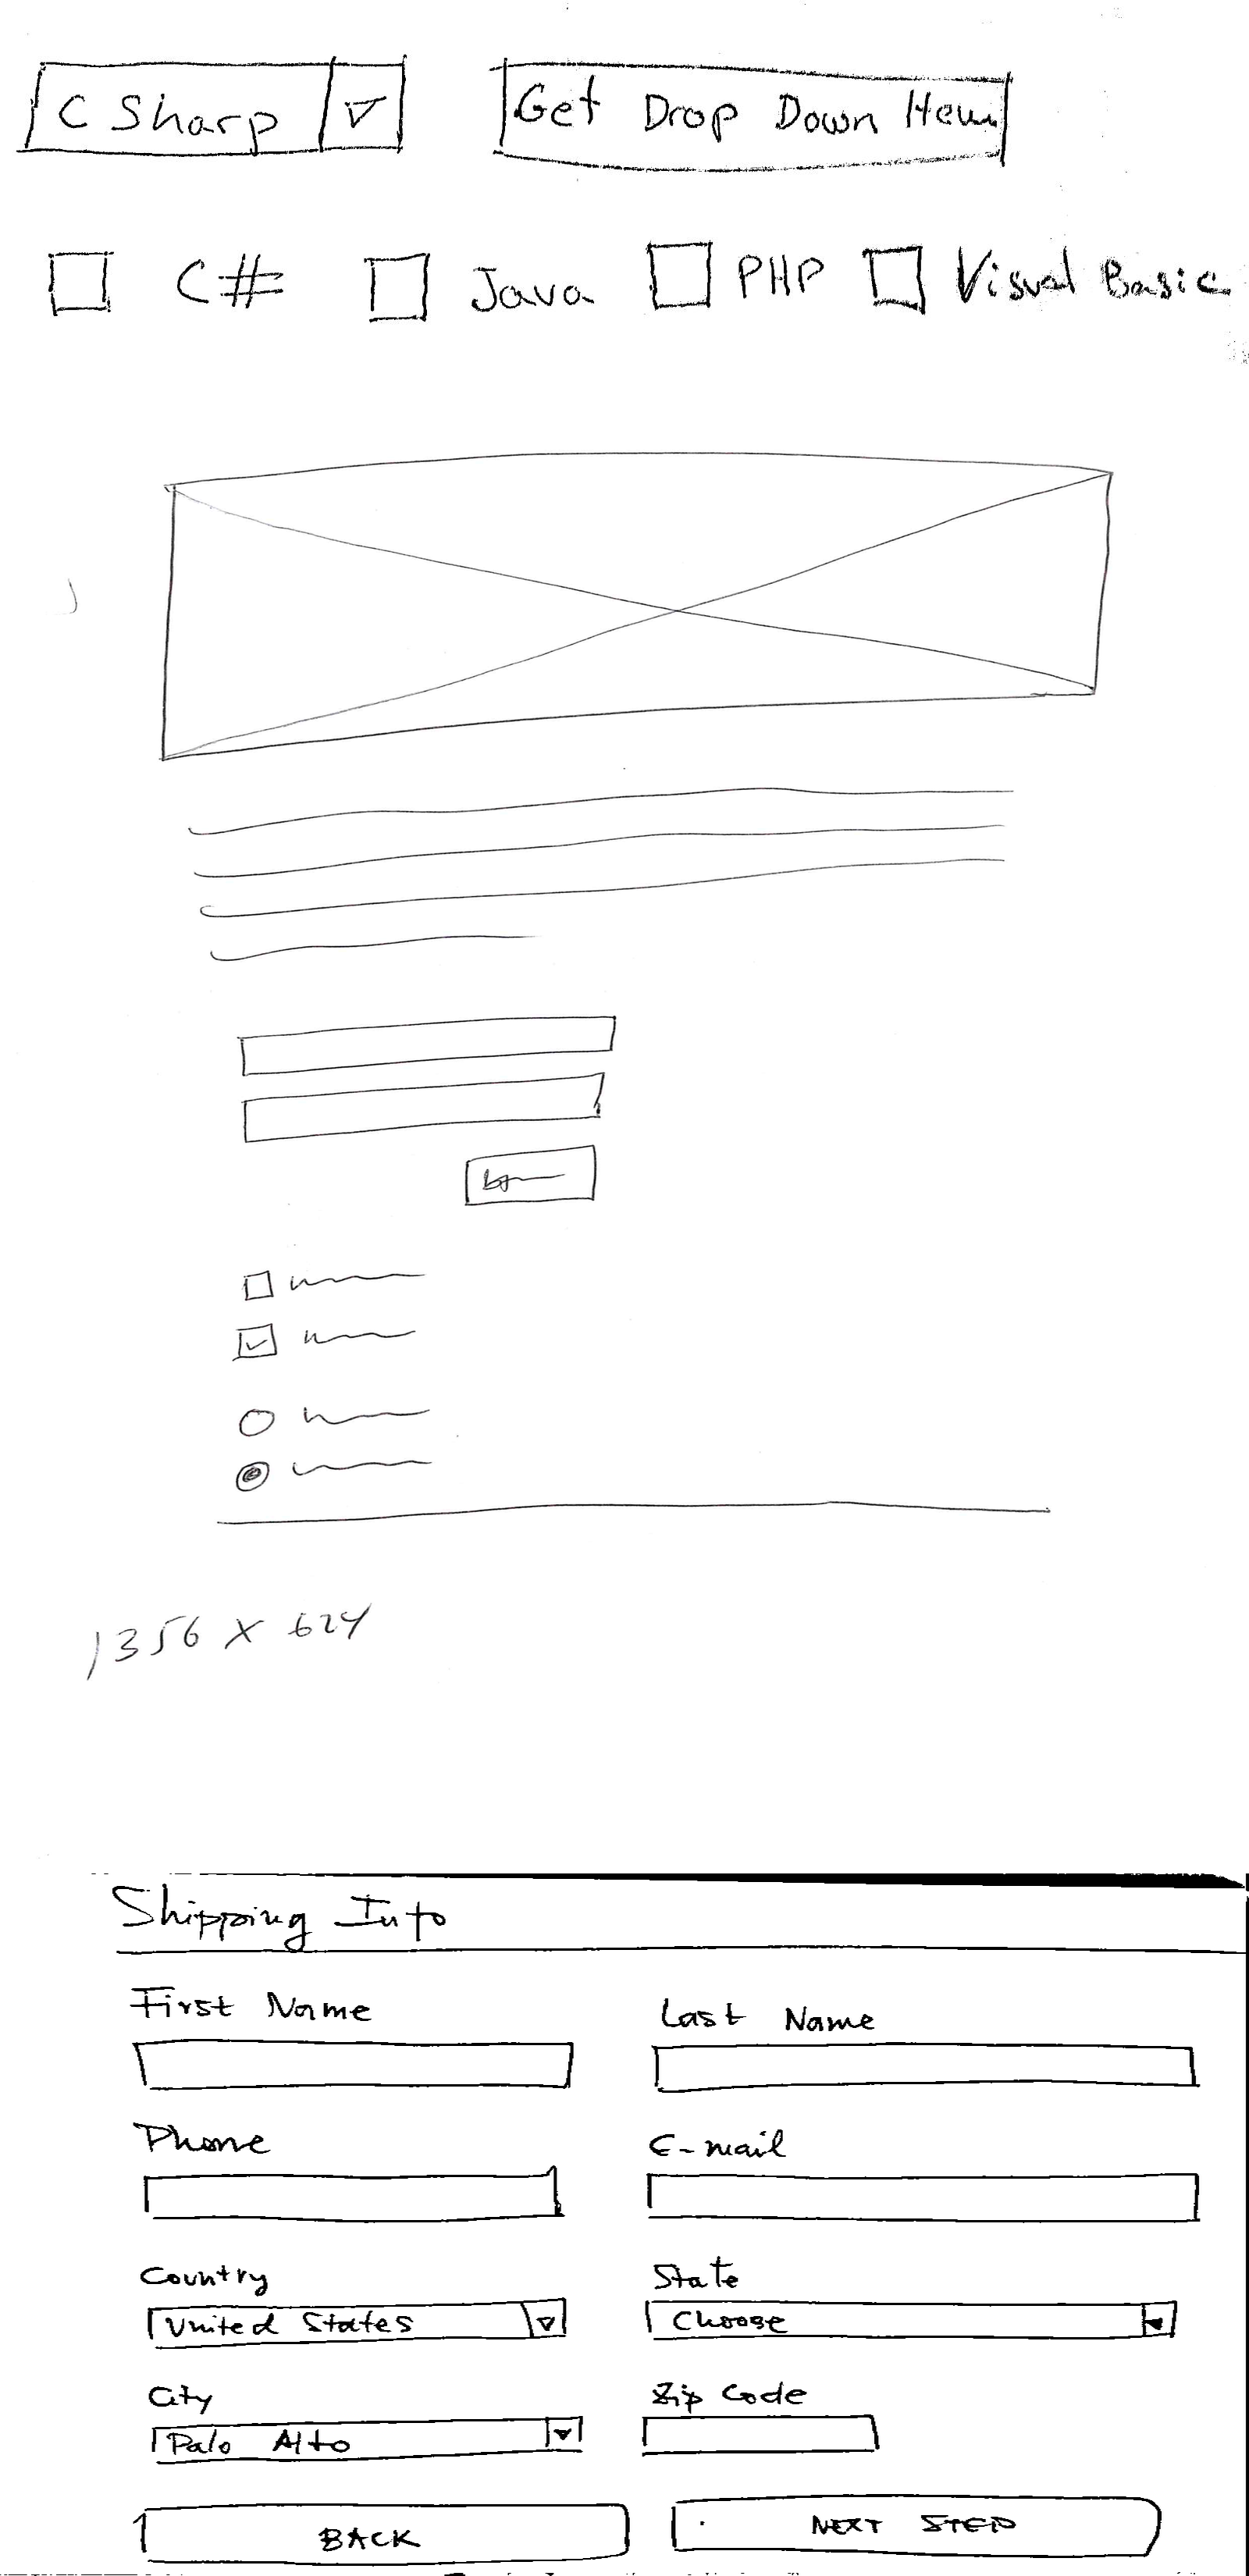 C Sharp Get Drop Down
C# Java PHP Visual Basic
1356 x 624
Shipping Info
First Name Last Name
Phone E-mail
Country State
United States Choose
City Zip Code
Palo Alto
BACK NEXT STEP